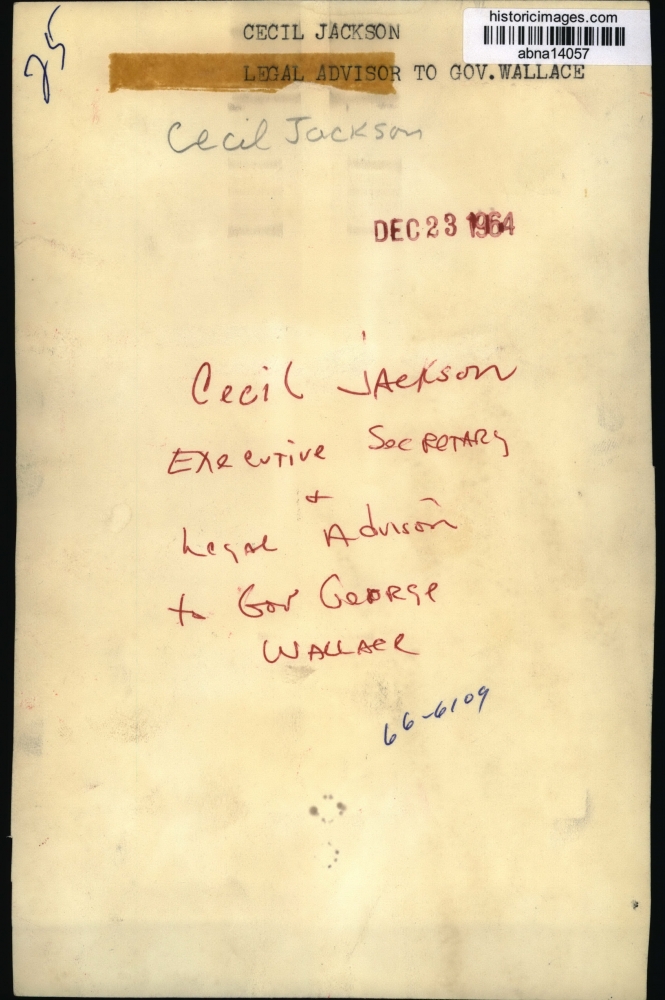 historicimages.com
abna14057
25
CECIL JACKSON
LEGAL ADVISOR TO GOV.WALLACE
Cecil Jackson
DEC 23 1964
Cecil JAckson
Executive SecRetARy
+
Legal Advisor
to Gov GeoRge
WALLACE
66-6109